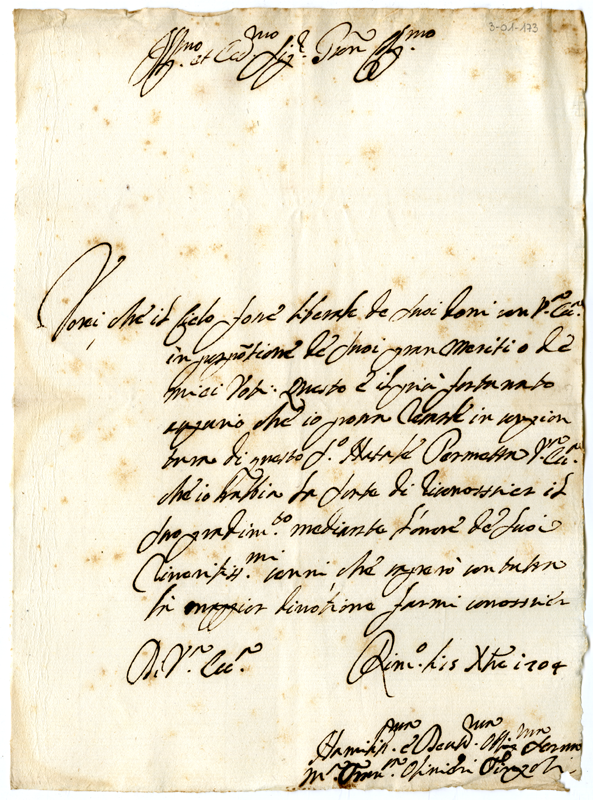 3-01-173
Ill.mo et Ecc.mo Sig.r Pron Col.mo
Vorei, che il Cielo fosse liberale de suoi doni con V.ra Ecc.za
in proportione de suoi gran meriti o de
miei Voti. Questo è il più fortunato
augurio che io possa farle in congion
tura di questo S.to Natale. Permetta V.ra Ecc.za
che io habbia la sorte di riconoscier il
suo gradim.to mediante l'onore de suoi
riveritiss.mi cenni, che saprerò con tutta
la maggior divotione farmi conoscier
Di V.ra Ecc.za
Rim.o li 15 Xbre 1704
Humiliss.ma e Devot.ma Obblig.ma Serva
M.a Fran.ca